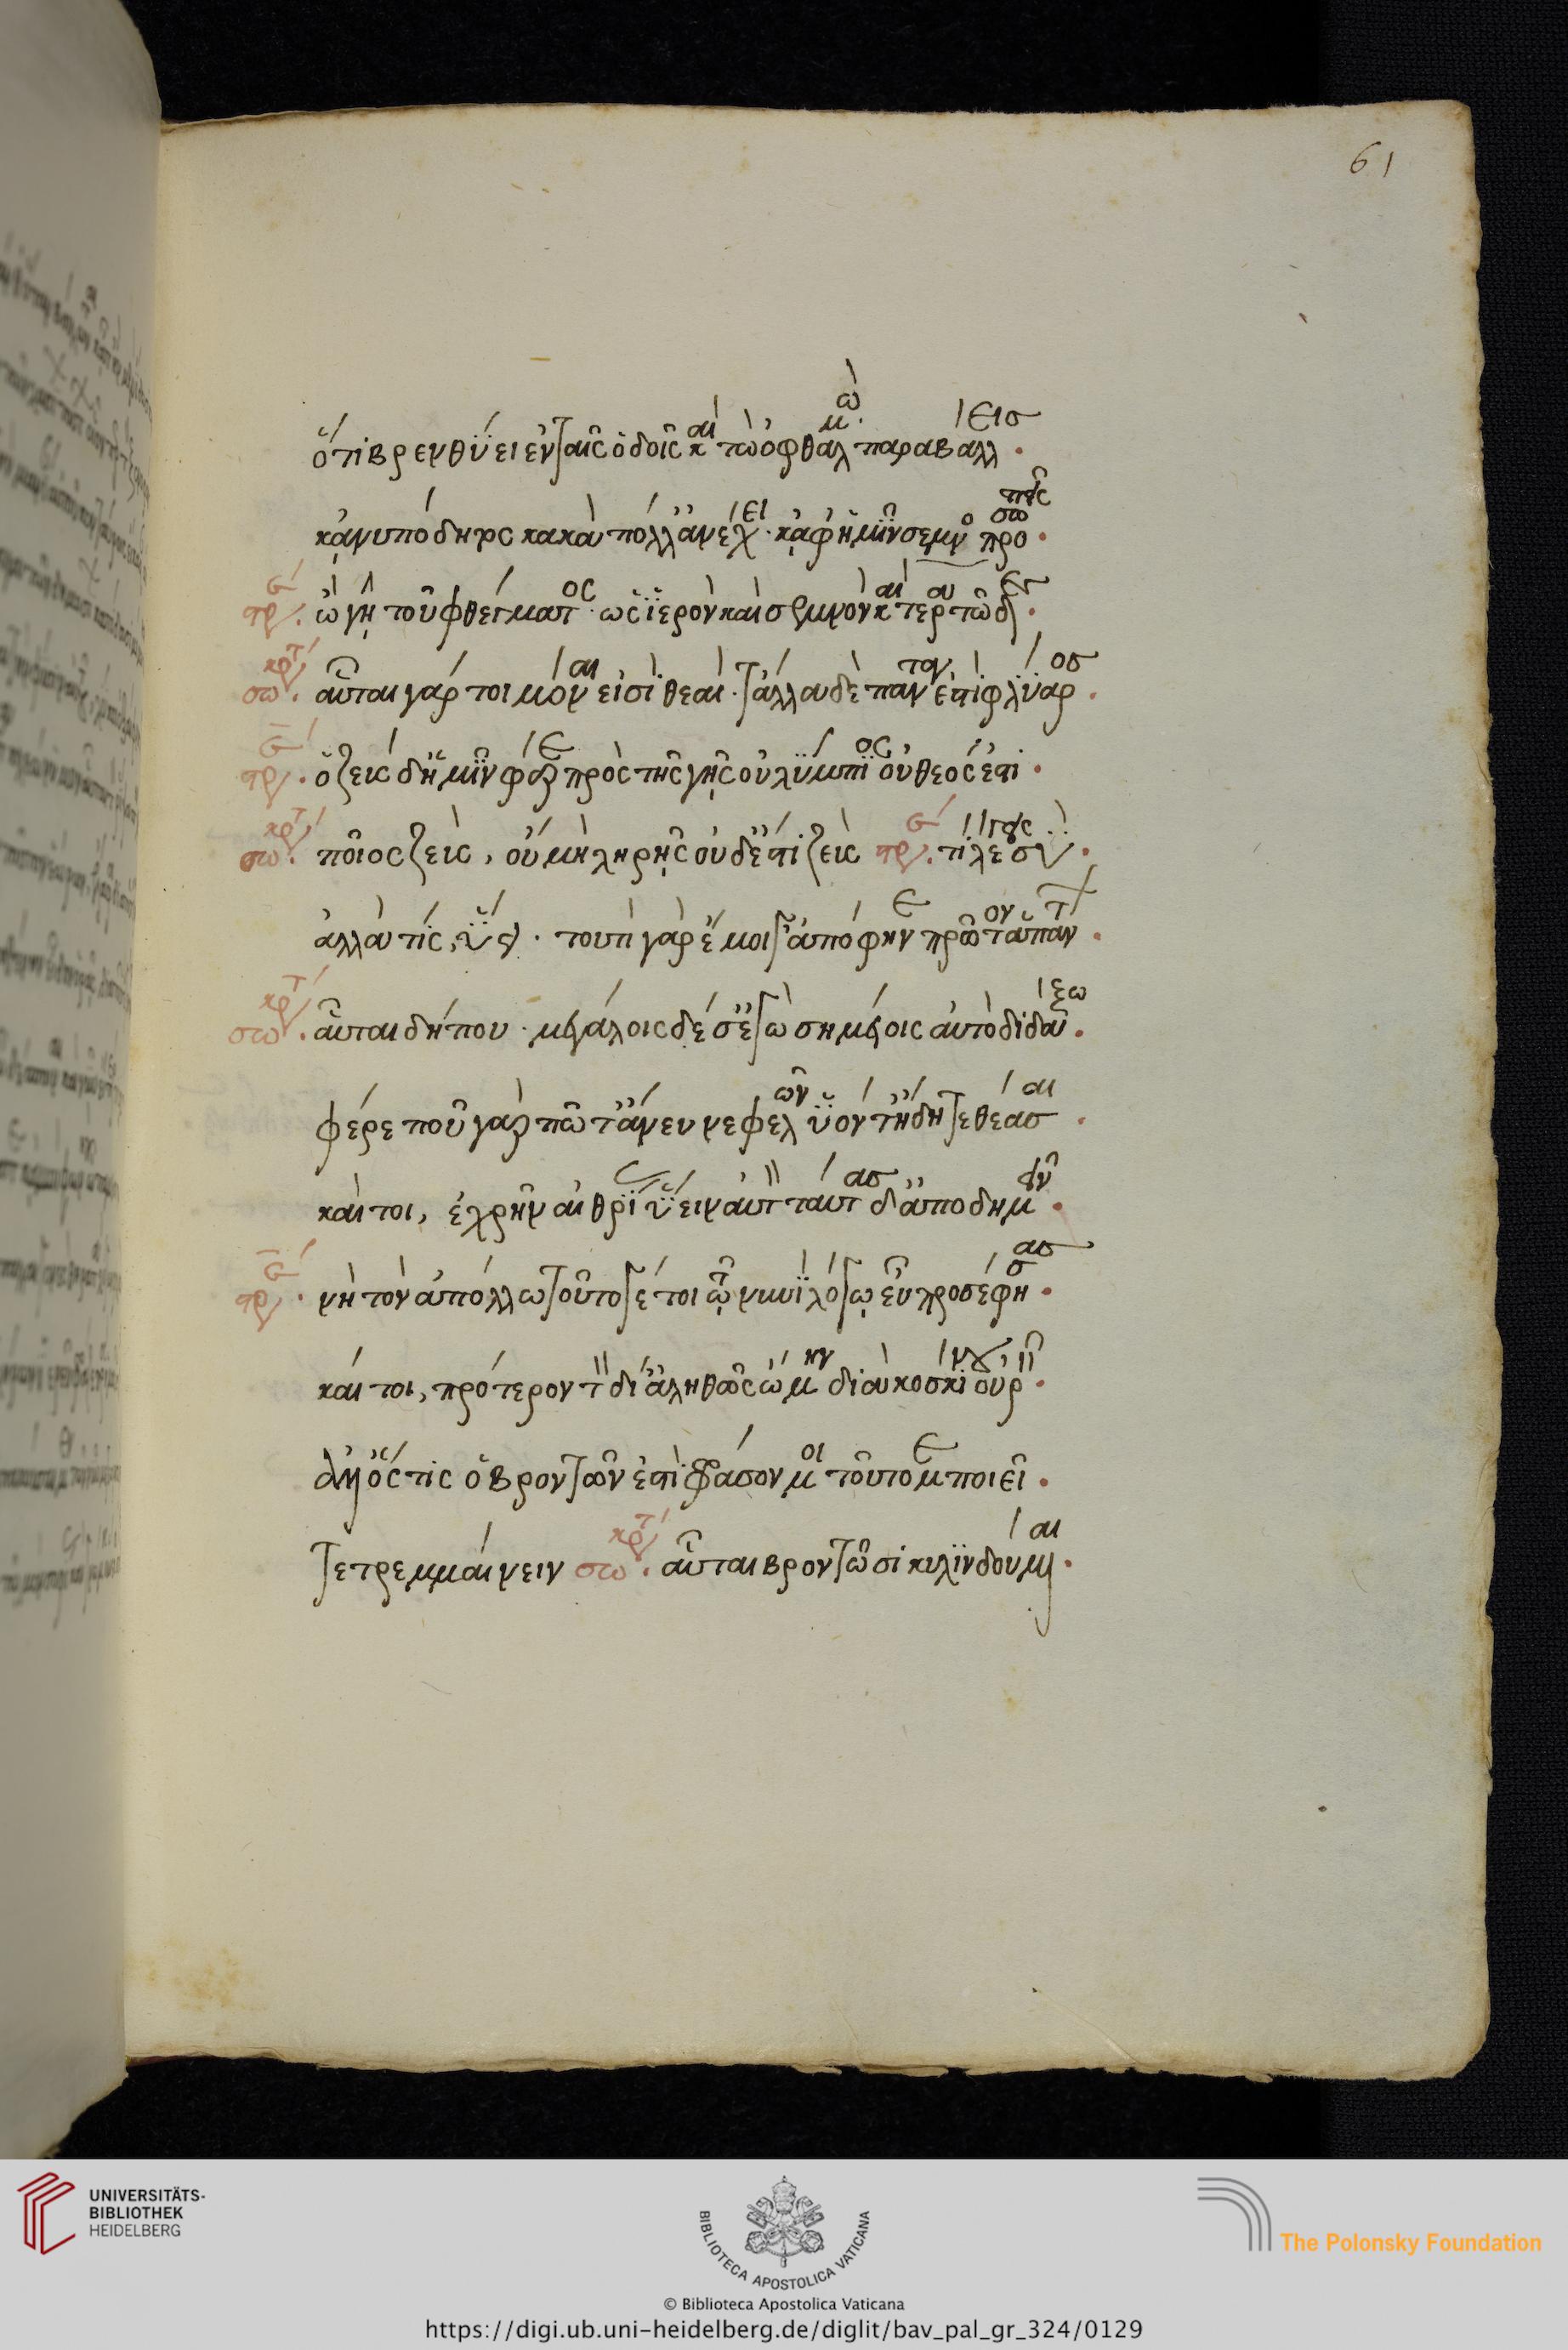 61
ὅτι βρενθύει ἐν ταῖς ὁδοῖς καὶ τὼ ὀφθαλμὼ παραβάλλεις.
κἀνυπόδητος κακὰ πόλλ' ἀνέχει. κἀφ' ἡμῖν σεμνοπροσωπεῖς.
στρ. ὦ γῆ τοῦ φθέγματος. ὡς ἱερὸν καὶ σεμνὸν καὶ τερατῶδες.
σωκρτ. αὗται γάρ τοι μόναι εἰσὶ θεαί. τἄλλα δὲ πάντ' ἐστὶ φλύαρος.
στρ. ὁ ζεὺς δ' ἡμῖν φέρε πρὸς τῆς γῆς οὑλύμπιος οὐ θεός ἐστι.
σωκρτ. ποῖος ζεύς, οὐ μὴ ληρῇς οὐδέ ἐστι ζεύς στρ. τί λέγεις σύ.
ἀλλὰ τίς ὕει. τουτὶ γὰρ ἔμοιγ' ἀπόφηναι πρῶτον ἁπάντων.
σωκρτ. αὗται δήπου. μεγάλοις δέ σ' ἐγὼ σημείοις αὐτὸ διδάξω.
φέρε ποῦ γὰρ πώποτ' ἄνευ νεφελῶν ὕοντ' ἤδη τεθέασαι.
καίτοι, ἐχρῆν αἰθρίας ὕειν αὐτὸν ταύτας δ' ἀποδημεῖν.
στρ. νὴ τὸν ἀπόλλω τοῦτό γέ τοι τῷ νυνὶ λόγῳ εὖ προσέφησας.
καίτοι, πρότερον τὸν δί' ἀληθῶς ᾤμην διὰ κοσκίνου οὐρεῖν.
ἀλλ' ὅστις ὁ βροντῶν ἐστι φράσον μοι τοῦτό με ποιεῖ.
τετρεμαίνειν σωκρτ. αὗται βροντῶσι κυλινδούμεναι.
UNIVERSITÄTS-
BIBLIOTHEK
HEIDELBERG
BIBLIOTECA APOSTOLICA VATICANA
The Polonsky Foundation
© Biblioteca Apostolica Vaticana
https://digi.ub.uni-heidelberg.de/diglit/bav_pal_gr_324/0129